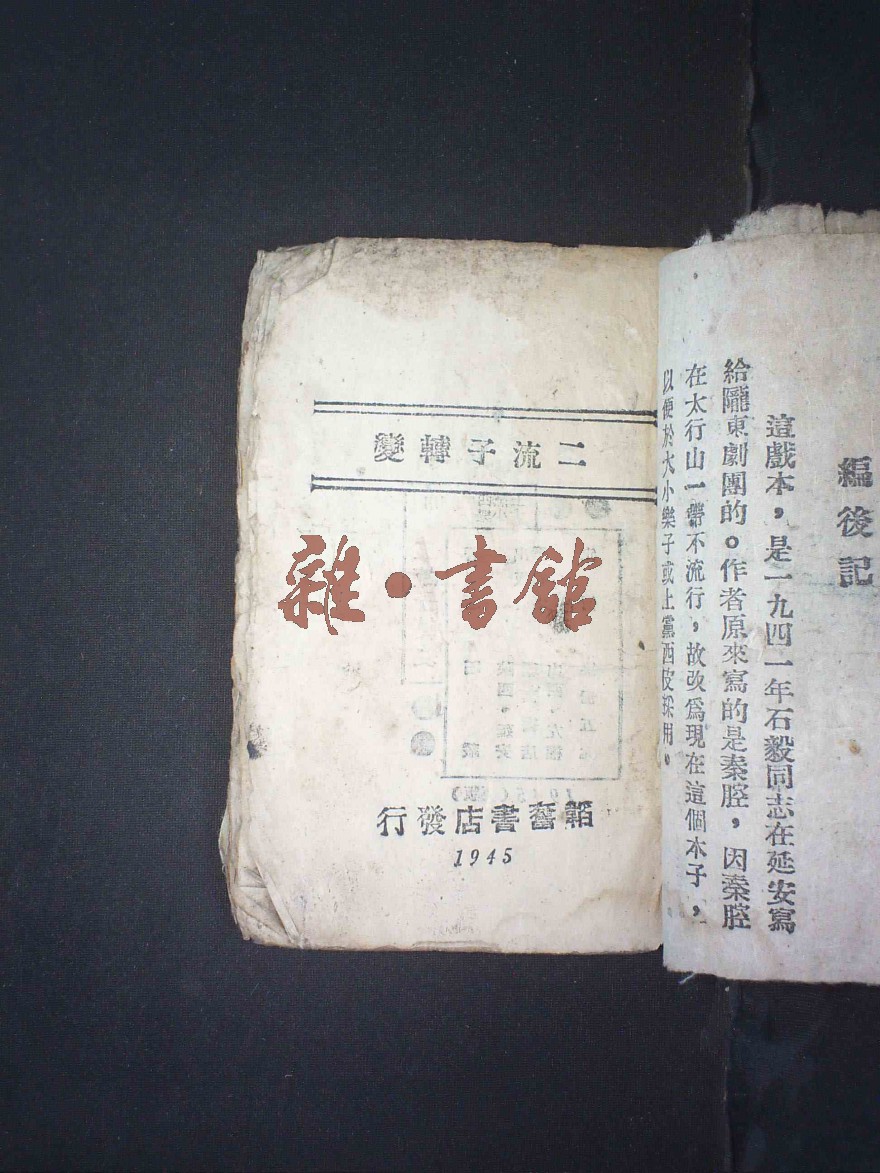 編後記
這戲本，是一九四一年石毅同志在延安寫
給隴東劇團的。作者原來寫的是秦腔，因秦腔
在太行山一帶不流行，故改爲現在這個本子，
以便於大小樂子或上黨西皮採用。
二流子轉變
雜·書館
韜奮書店發行
1945